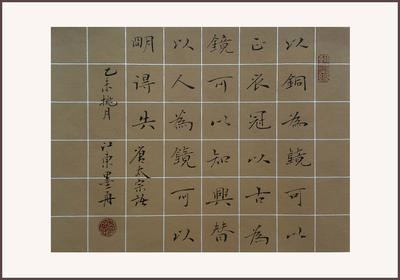 以銅為鏡可以
正衣冠以古為
鏡可以知興替
以人為鏡可以
明得失 唐太宗語
乙未桃月 江東墨舟